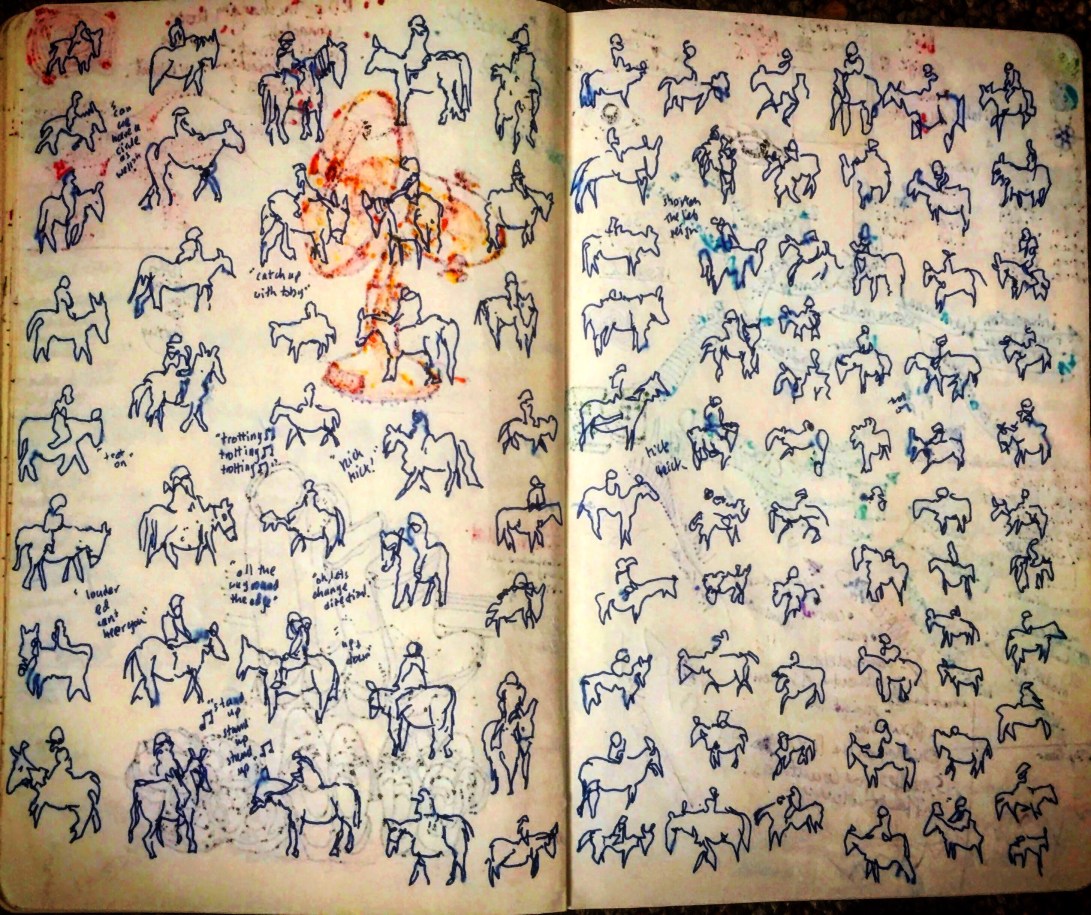 "can
we
have a
circle as
well"
"catch up
with toby"
"trot
on"
"trotting♫
trotting♫
trotting♫"
"kick
kick!"
"louder
ed
can't
hear you"
"all the
way round
the edge"
"oh, lets
change
direction!
"up +
down"
♫"stand
up
stand
up
stand ♫
up
shorten
the left
reign
kick
quick